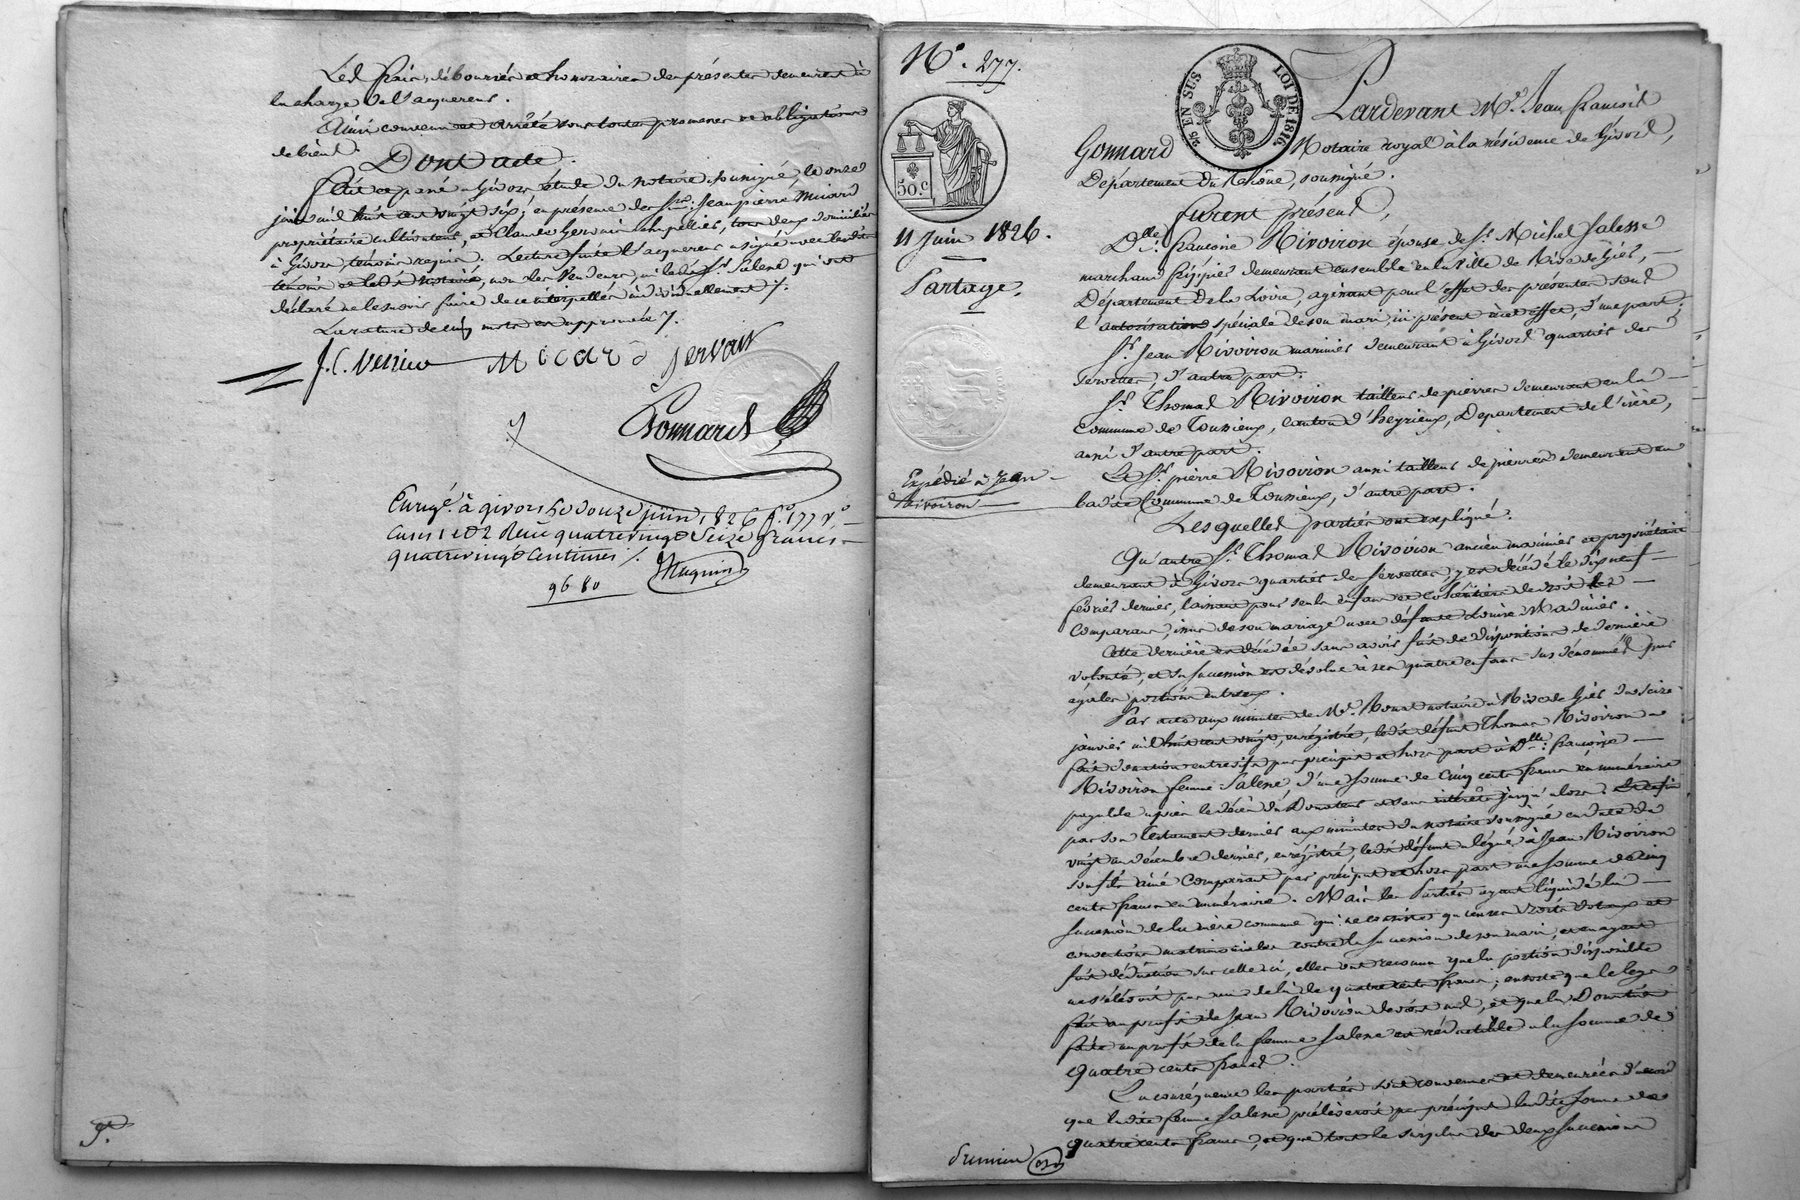 Les frais, déboursés et honoraires des présentes demeurent à
la charge de l'acquereur.
Ainsi convenu et arrêté sous toutes promesses et obligations
de biens.
Dont acte.
Fait et passé à Givors étude du notaire soussigné, le onze
juin mil huit cent vingt six, en présence des Srs. Jean pierre Micard
propriétaire cultivateur, et Claude Gervais chapellier, tous deux domiciliés
à Givors, témoins requis. Lecture faite l'acquereur a signé avec lesdits
témoins et ledit Notaire, non les Vendeurs, ni ledit Sr. Salesse qui ont
déclaré ne le savoir faire de ce interpellés individuellement /.
La rature de cinq mots est approuvée /.
Micard Gervais
Gonnard
Enregé. à givors le douze juin 1826 fo. 177 Vo.
cases 1 et 2 Reçu quatrevingt Seize francs
quatrevingt Centimes /.
96 80
No. 277.
50 c
11 Juin 1826.
Partage.
Expédié à Jean
Rivoiron
2/5 EN SUS
LOI DE 1816.
Pardevant Me. Jean francois
Gonnard Notaire royal à la résidence de Givors,
Département du Rhône, soussigné.
furent présens,
Dlle. françoise Rivoiron épouse de Sr. Michel Salesse
marchand fripier demeurant ensemble en la ville de Rive de Giés,
Département de la Loire, agissant pour l'effet des présentes sous
l'autorisation spéciale de son mari, ici présent à cet effet, d'une part;
Sr. Jean Rivoiron marinier demeurant à Givors quartier des
servettes, d'autre part.
Sr. Thomas Rivoiron tailleur de pierres demeurant en la
Commune de Toussieux, canton d'heyrieux, Département de l'isère,
aussi d'autre part.
Le Sr. pierre Rivoiron aussi tailleur de pierres demeurant en
ladite Commune de Toussieux, d'autre part.
Lesquelles parties ont expliqué.
Qu'autre Sr. Thomas Rivoiron ancien marinier et propriétaire
demeurant à Givors quartier de servettes, y est décédé le dix neuf
février dernier, laissant pour seuls enfans et cohéritiers de droit les
Comparans, issus de son mariage avec défunte Louise Madinier.
Cette dernière est décédée sans avoir fait de dispositions de dernière
volonté, et sa succession est dévolue à ses quatre enfans sus dénommés pour
égales portions entr'eux.
Par acte aux minutes de Me. notaire à Rive de Giés du seize
janvier mil huit cent vingt, enregistré, ledit défunt Thomas Rivoiron a
fait donation entrevifs par préciput et hors part à Dlle. françoise
Rivoiron femme Salesse, d'une somme de Cinq cents francs en numéraire
payable après le décès du Donateur et sans intérêts jusqu'alors. Et enfin
par son Testament dernier aux minutes du notaire soussigné en date du
vingt un décembre dernier, enregistré, ledit défunt a légué à Jean Rivoiron
son fils ainé comparant par préciput et hors part une somme de cinq
cents francs en numéraire. Mais les Parties ayant liquidé la
succession de la mère commune qui ne consiste qu'en ses droits dotaux et
conventions matrimoniales contre la succession de son mari, et en ayant
fait déduction sur celle ci, elles ont reconnu que la portion disponible
ne s'élevoit pas au delà de quatre cents francs; ensorte que le legs
fait au profit de Jean Rivoiron devient nul, et que la Donation
faite au profit de la femme Salesse est réductible à la somme de
quatre cents francs.
En conséquence les parties sont convenues et demeurées d'accord
que ladite femme Salesse prélèveroit par préciput ladite somme de
quatre cents francs, et que tout le surplus des deux successions